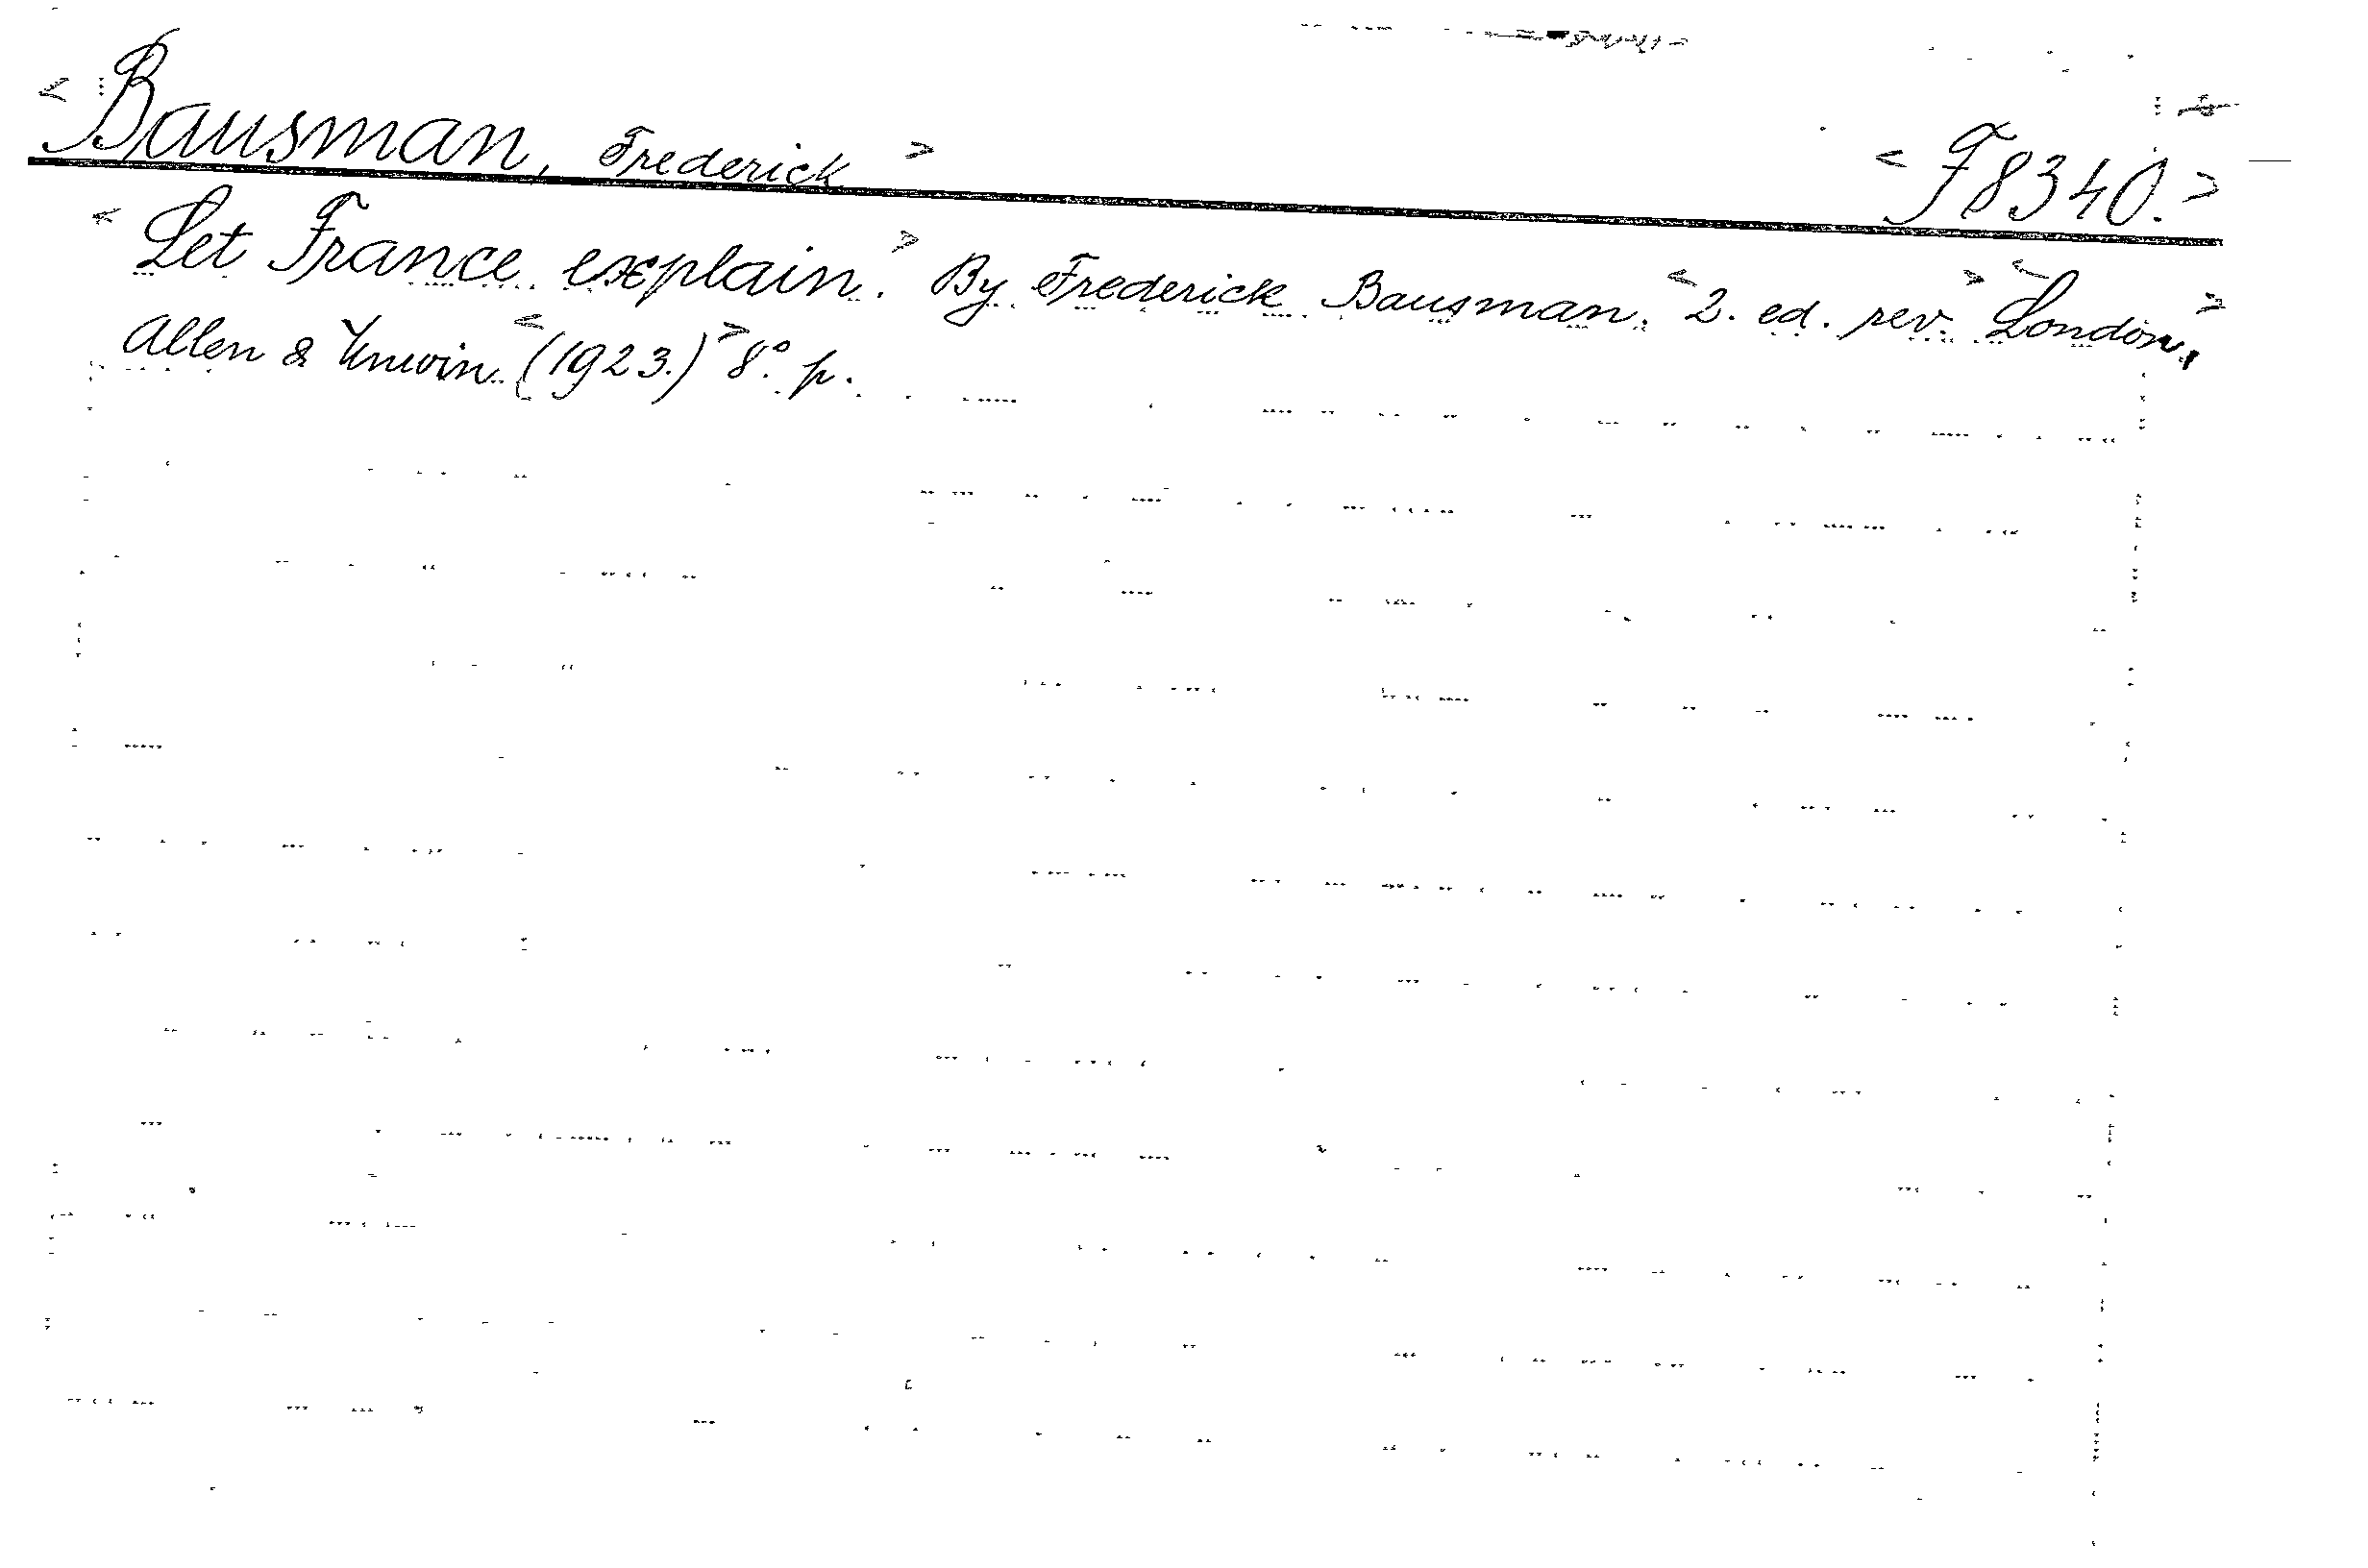 < Bausman, Frederick > < F8340. >
< Let France explain. > By Frederick Bausman. < 2. ed. rev. > < London, >
Allen & Unwin < (1923.) > 8° p.